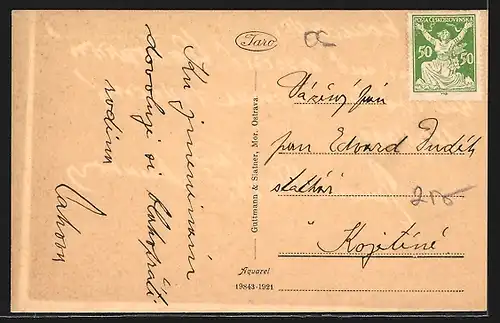 Taro
Ku jmeninám
dovoluji si blahopřáti
rodina
Guttmann & Slatner, Mor. Ostrava.
Aquarel
19843-1921
POŠTA ČESKOSLOVENSKÁ
50 50
Vážený pán
pan Edvard Dudík
Kojetíně